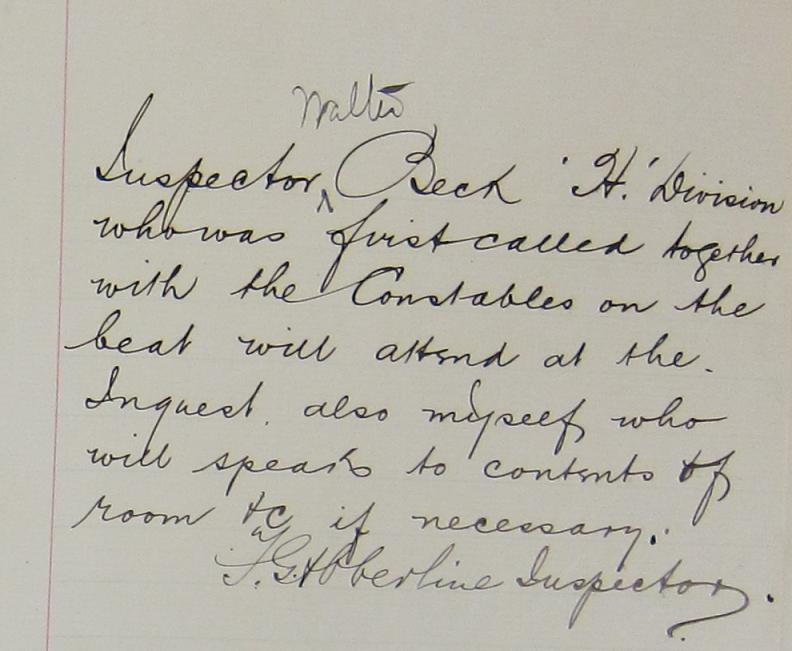 Walter
Inspector ^ Beck 'H.' Division
who was first called together
with the Constables on the
beat will attend at the.
Inquest. also myself who
will speak to contents of
room &c if necessary.
F.G. Abberline Inspector.